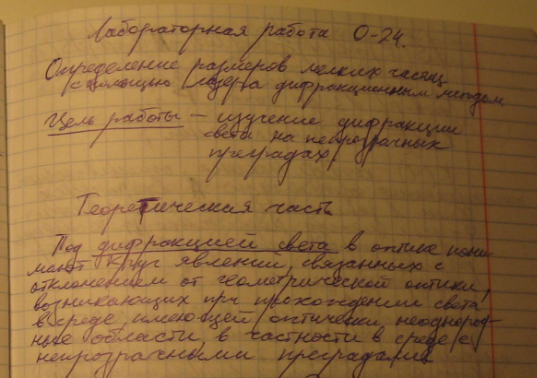 Лабораторная работа О-24.
Определение размеров мелких частиц
с помощью лазера дифракционным методом
Цель работы – изучение дифракции
света на непрозрачных
преградах
Теоретическая часть
Под дифракцией света в оптике пони
мают круг явлений, связанных с
отклонением от геометрической оптики,
возникающих при прохождении света
в среде, имеющей оптически неоднород-
ные области, в частности в среде с
непрозрачными преградами